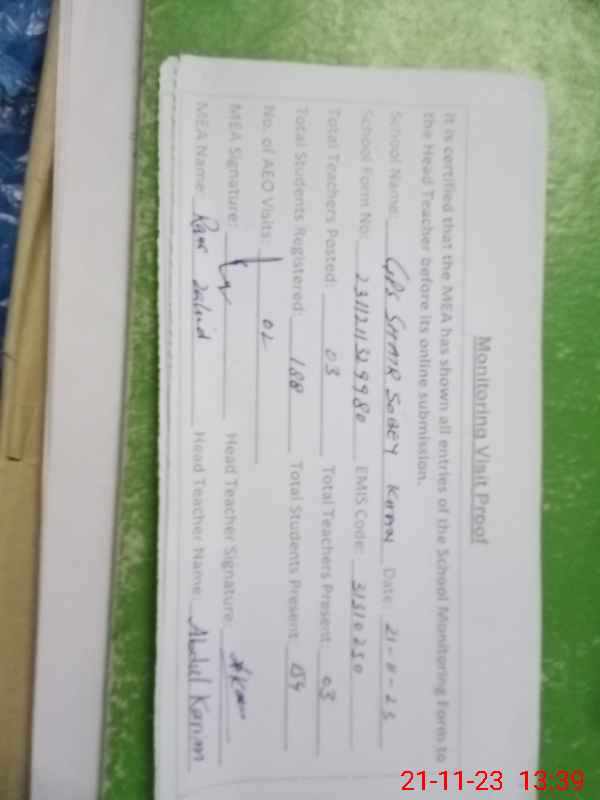 Monitoring Visit Proof
It is certified that the MEA has shown all entries of the School Monitoring Form to
the Head Teacher before its online submission.
School Name: GPS SHAIR SOBEY KHAN Date: 21-11-23
School Form No: EMIS Code: 31310250
Total Teachers Posted: 03 Total Teachers Present: 03
Total Students Registered: 188 Total Students Present: 154
No. of AEO Visits: 02
MEA Signature: Head Teacher Signature:
MEA Name: Head Teacher Name: Abdul Karim
21-11-23 13:39